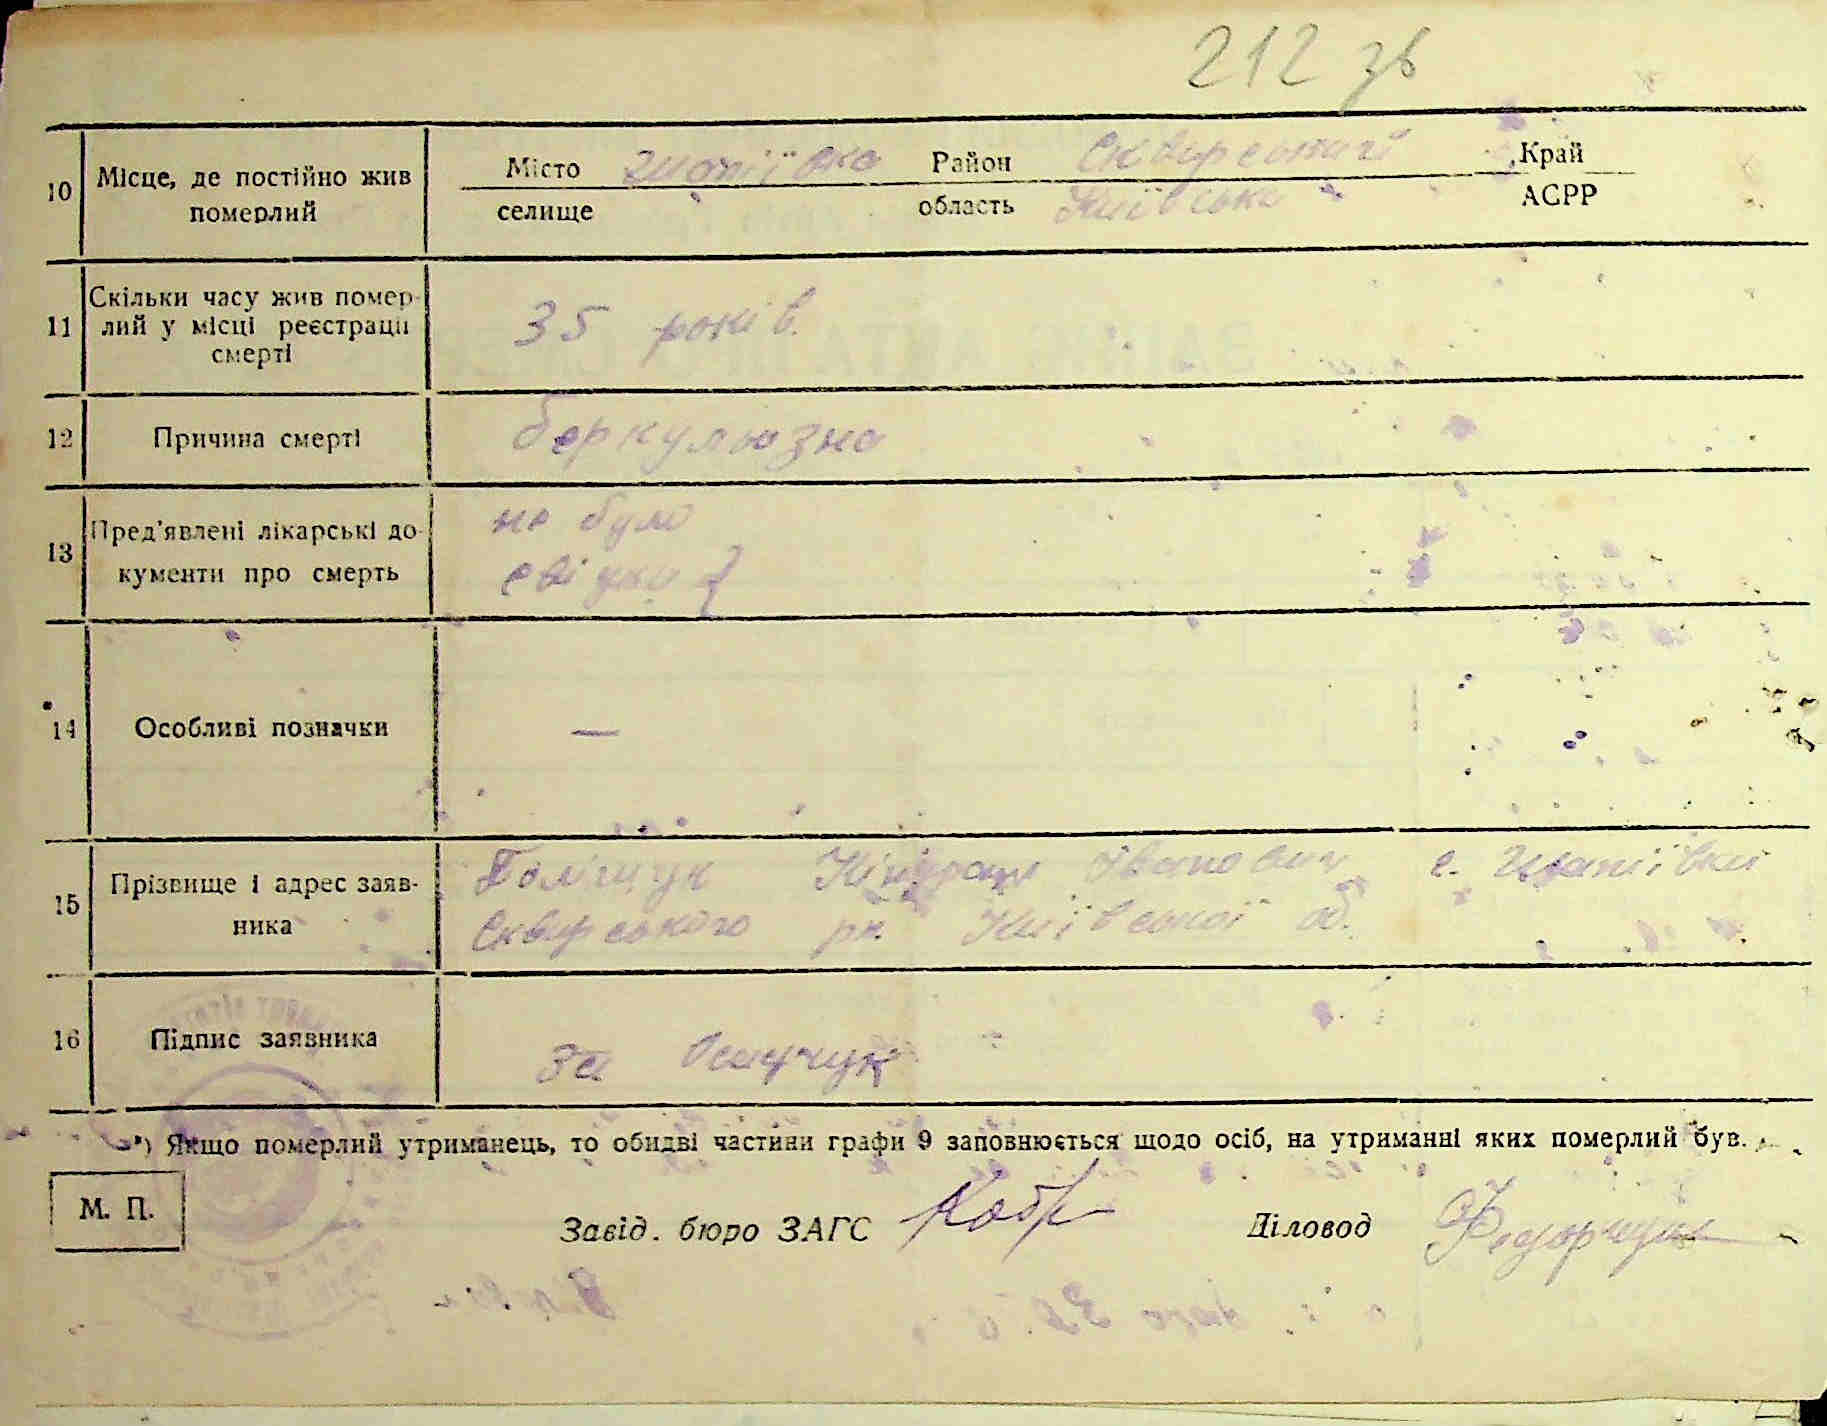 212 зв
10 Місце, де постійно жив Місто Шапіївка Район Сквирський Край
померлий селище область Київська АСРР
11 Скільки часу жив помер-
лий у місці реєстрації 35 років.
смерті
12 Причина смерті беркульозна
13 Пред'явлені лікарські до- не було
кументи про смерть
14 Особливі позначки —
15 Прізвище і адрес заяв- Поліщук Іванович с. Шапіївки
ника Сквирського рн. Київської об.
16 Підпис заявника За
*) Якщо померлий утриманець, то обидві частини графи 9 заповнюється щодо осіб, на утриманні яких померлий був.
М. П.
Завід. бюро ЗАГС Діловод Федорчук